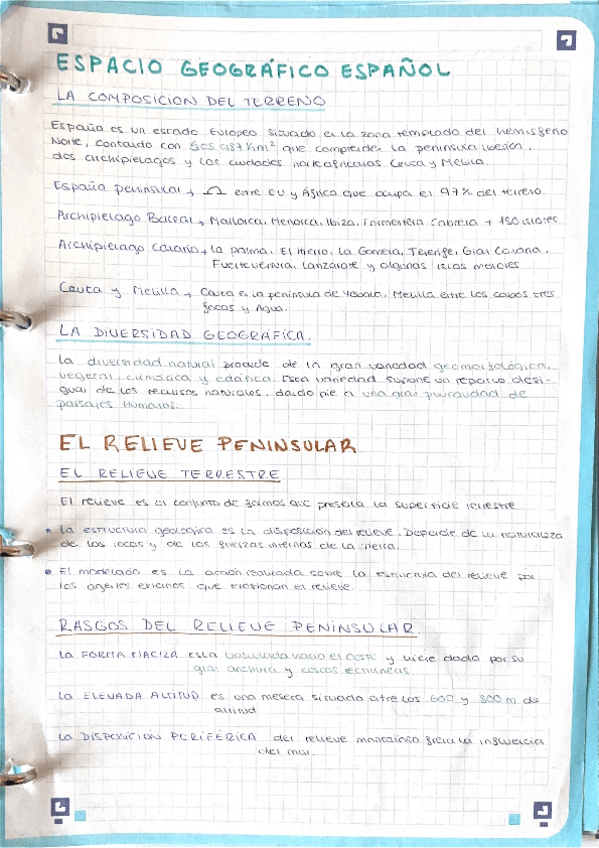 ESPACIO GEOGRÁFICO ESPAÑOL
LA COMPOSICION DEL TERRENO
España es un estado Europeo situado en la zona templada del hemisferio
Norte, contando con 505.987 Km² que comprenden la península ibérica,
dos archipielagos y las ciudades norteafricanas Ceuta y Melilla.
España peninsular → entre EU y África que ocupa el 97% del terreno.
Archipielago Balear → Mallorca, Menorca, Ibiza, Formentera Cabrera + 150 islotes
Archipielago Canario → La palma, El Hierro, La Gomera, Tenerife, Gran Canaria,
Fuerteventura, Lanzarote y algunas islas menores
Ceuta y Melilla → Ceuta en la península de Yebala, Melilla entre los cabos tres
forcas y Agua.
LA DIVERSIDAD GEOGRÁFICA.
La diversidad natural procede de la gran variedad geomorfológica,
vegetal, climática y edáfica. Esta variedad supone un reparto desi-
gual de los recursos naturales, dando pie a una gran pluralidad de
paisajes humanos.
EL RELIEVE PENINSULAR
EL RELIEVE TERRESTRE
El relieve es el conjunto de formas que presenta la superficie terrestre
• La estructura geológica es la disposición del relieve. Depende de la naturaleza
de las rocas y de las fuerzas internas de la tierra.
• El modelado es la acción realizada sobre la estructura del relieve por
los agentes externos que erosionan el relieve.
RASGOS DEL RELIEVE PENINSULAR.
La FORMA MACIZA esta basculada hacia el Oeste y viene dada por su
gran anchura y costas rectilíneas.
La ELEVADA ALTITUD es una meseta situada entre los 600 y 800 m de
altitud
La DISPOSICION PERIFÉRICA del relieve montañoso frena la influencia
del mar.